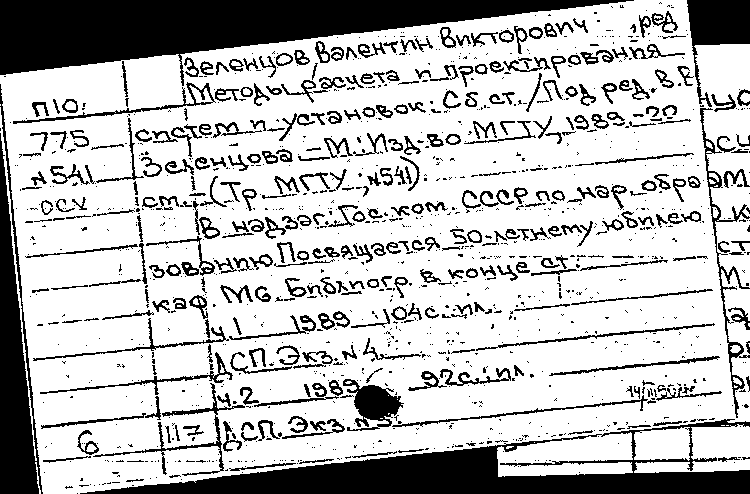 Зеленцов Валентин Викторович , ред
Методы расчета и проектирования
П10:
775
N541
ОСУ
систем и установок: Сб.ст. / Под ред. В.В
Зеленцова. - М.: Изд-во МГТУ, 1989. - 20
см. - (Тр. МГТУ ; N541).
В надзаг.: Гос. ком. СССР по нар. обра
зованию. Посвящается 50-летнему юбилею
каф. М6. Библиогр. в конце ст.
ч.1 1989 104с.: ил.
ДСП. Экз. N4
ч.2 1989 92с.: ил.
6 117 ДСП. Экз. N3.